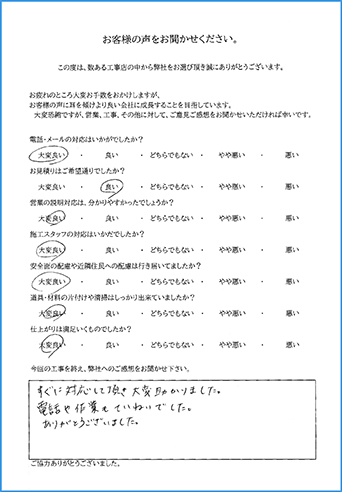 お客様の声をお聞かせください。
この度は、数ある工事店の中から弊社をお選び頂き誠にありがとうございます。
お疲れのところ大変お手数をおかけしますが、
お客様の声に耳を傾けより良い会社に成長することを目指しています。
大変恐縮ですが、営業、工事、その他に対して、ご意見ご感想をお聞かせいただければ幸いです。
電話・メールの対応はいかがでしたか？
大変良い ・ 良い ・ どちらでもない ・ やや悪い ・ 悪い
お見積りはご希望通りでしたか？
大変良い ・ 良い ・ どちらでもない ・ やや悪い ・ 悪い
営業の説明対応は、分かりやすかったでしょうか？
大変良い ・ 良い ・ どちらでもない ・ やや悪い ・ 悪い
施工スタッフの対応はいかだでしたか？
大変良い ・ 良い ・ どちらでもない ・ やや悪い ・ 悪い
安全面の配慮や近隣住民への配慮は行き届いてましたか？
大変良い ・ 良い ・ どちらでもない ・ やや悪い ・ 悪い
道具・材料の片付けや清掃はしっかり出来ていましたか？
大変良い ・ 良い ・ どちらでもない ・ やや悪い ・ 悪い
仕上がりは満足いくものでしたか？
大変良い ・ 良い ・ どちらでもない ・ やや悪い ・ 悪い
今回の工事を終え、弊社へのご感想をお聞かせ下さい。
すぐに対応して頂き大変助かりました。
電話や作業もていねいでした。
ありがとうございました。
ご協力ありがとうございました。